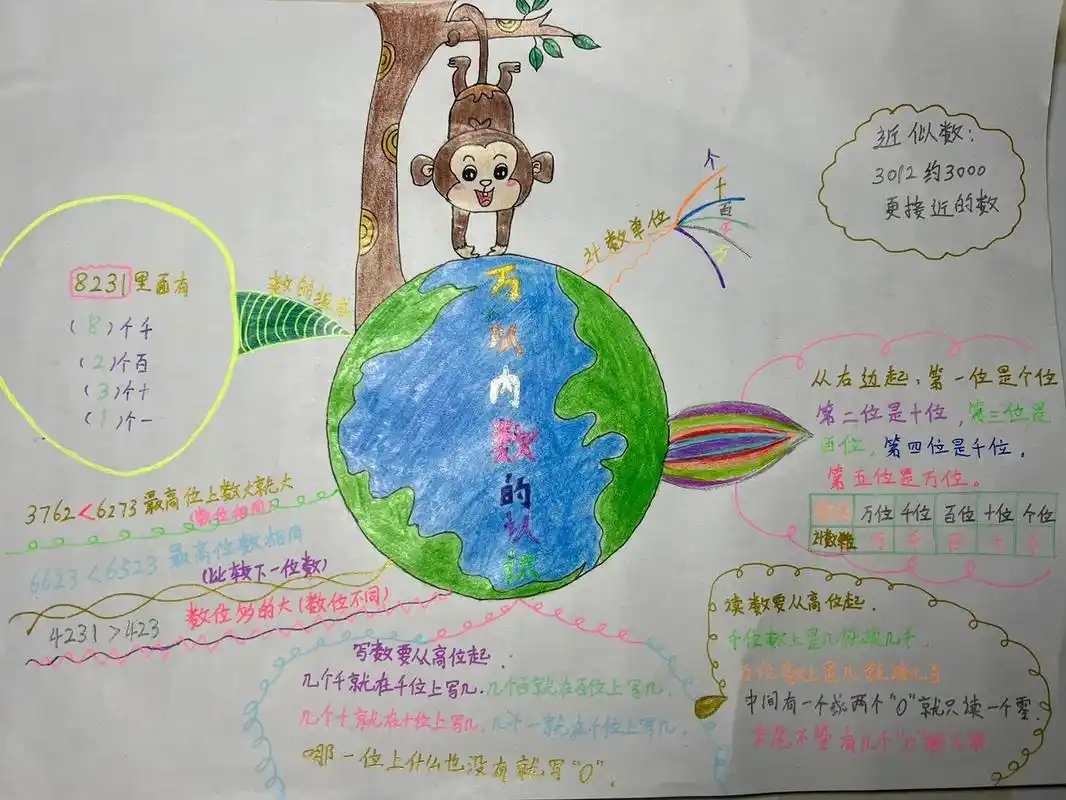 万以内数的认识
近似数：
3012约3000
更接近的数
计数单位
个
十
百
千
万
数的组成
8231里面有
(8)个千
(2)个百
(3)个十
(1)个一
从右边起，第一位是个位
第二位是十位，第三位是
百位，第四位是千位，
第五位是万位。
数位 万位 千位 百位 十位 个位
计数单位 万 千 百 十 个
3762<6273 最高位上数大就大
(数位相同)
6623<6523 最高位数相同
(比较下一位数)
数位多的大(数位不同)
4231>423
写数要从高位起．
几个千就在千位上写几．几个百就在百位上写几．
几个十就在十位上写几．几个一就在个位上写几．
哪一位上什么也没有就写“0”．
读数要从高位起．
千位数上是几就读几千．
百位数上是几就读几百
中间有一个或两个“0”就只读一个零．
末尾不管有几个“0”都不读